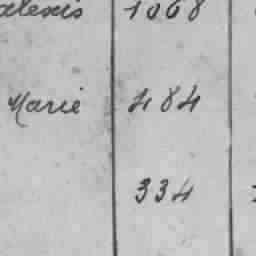 alexis 1068
Marie 484
334